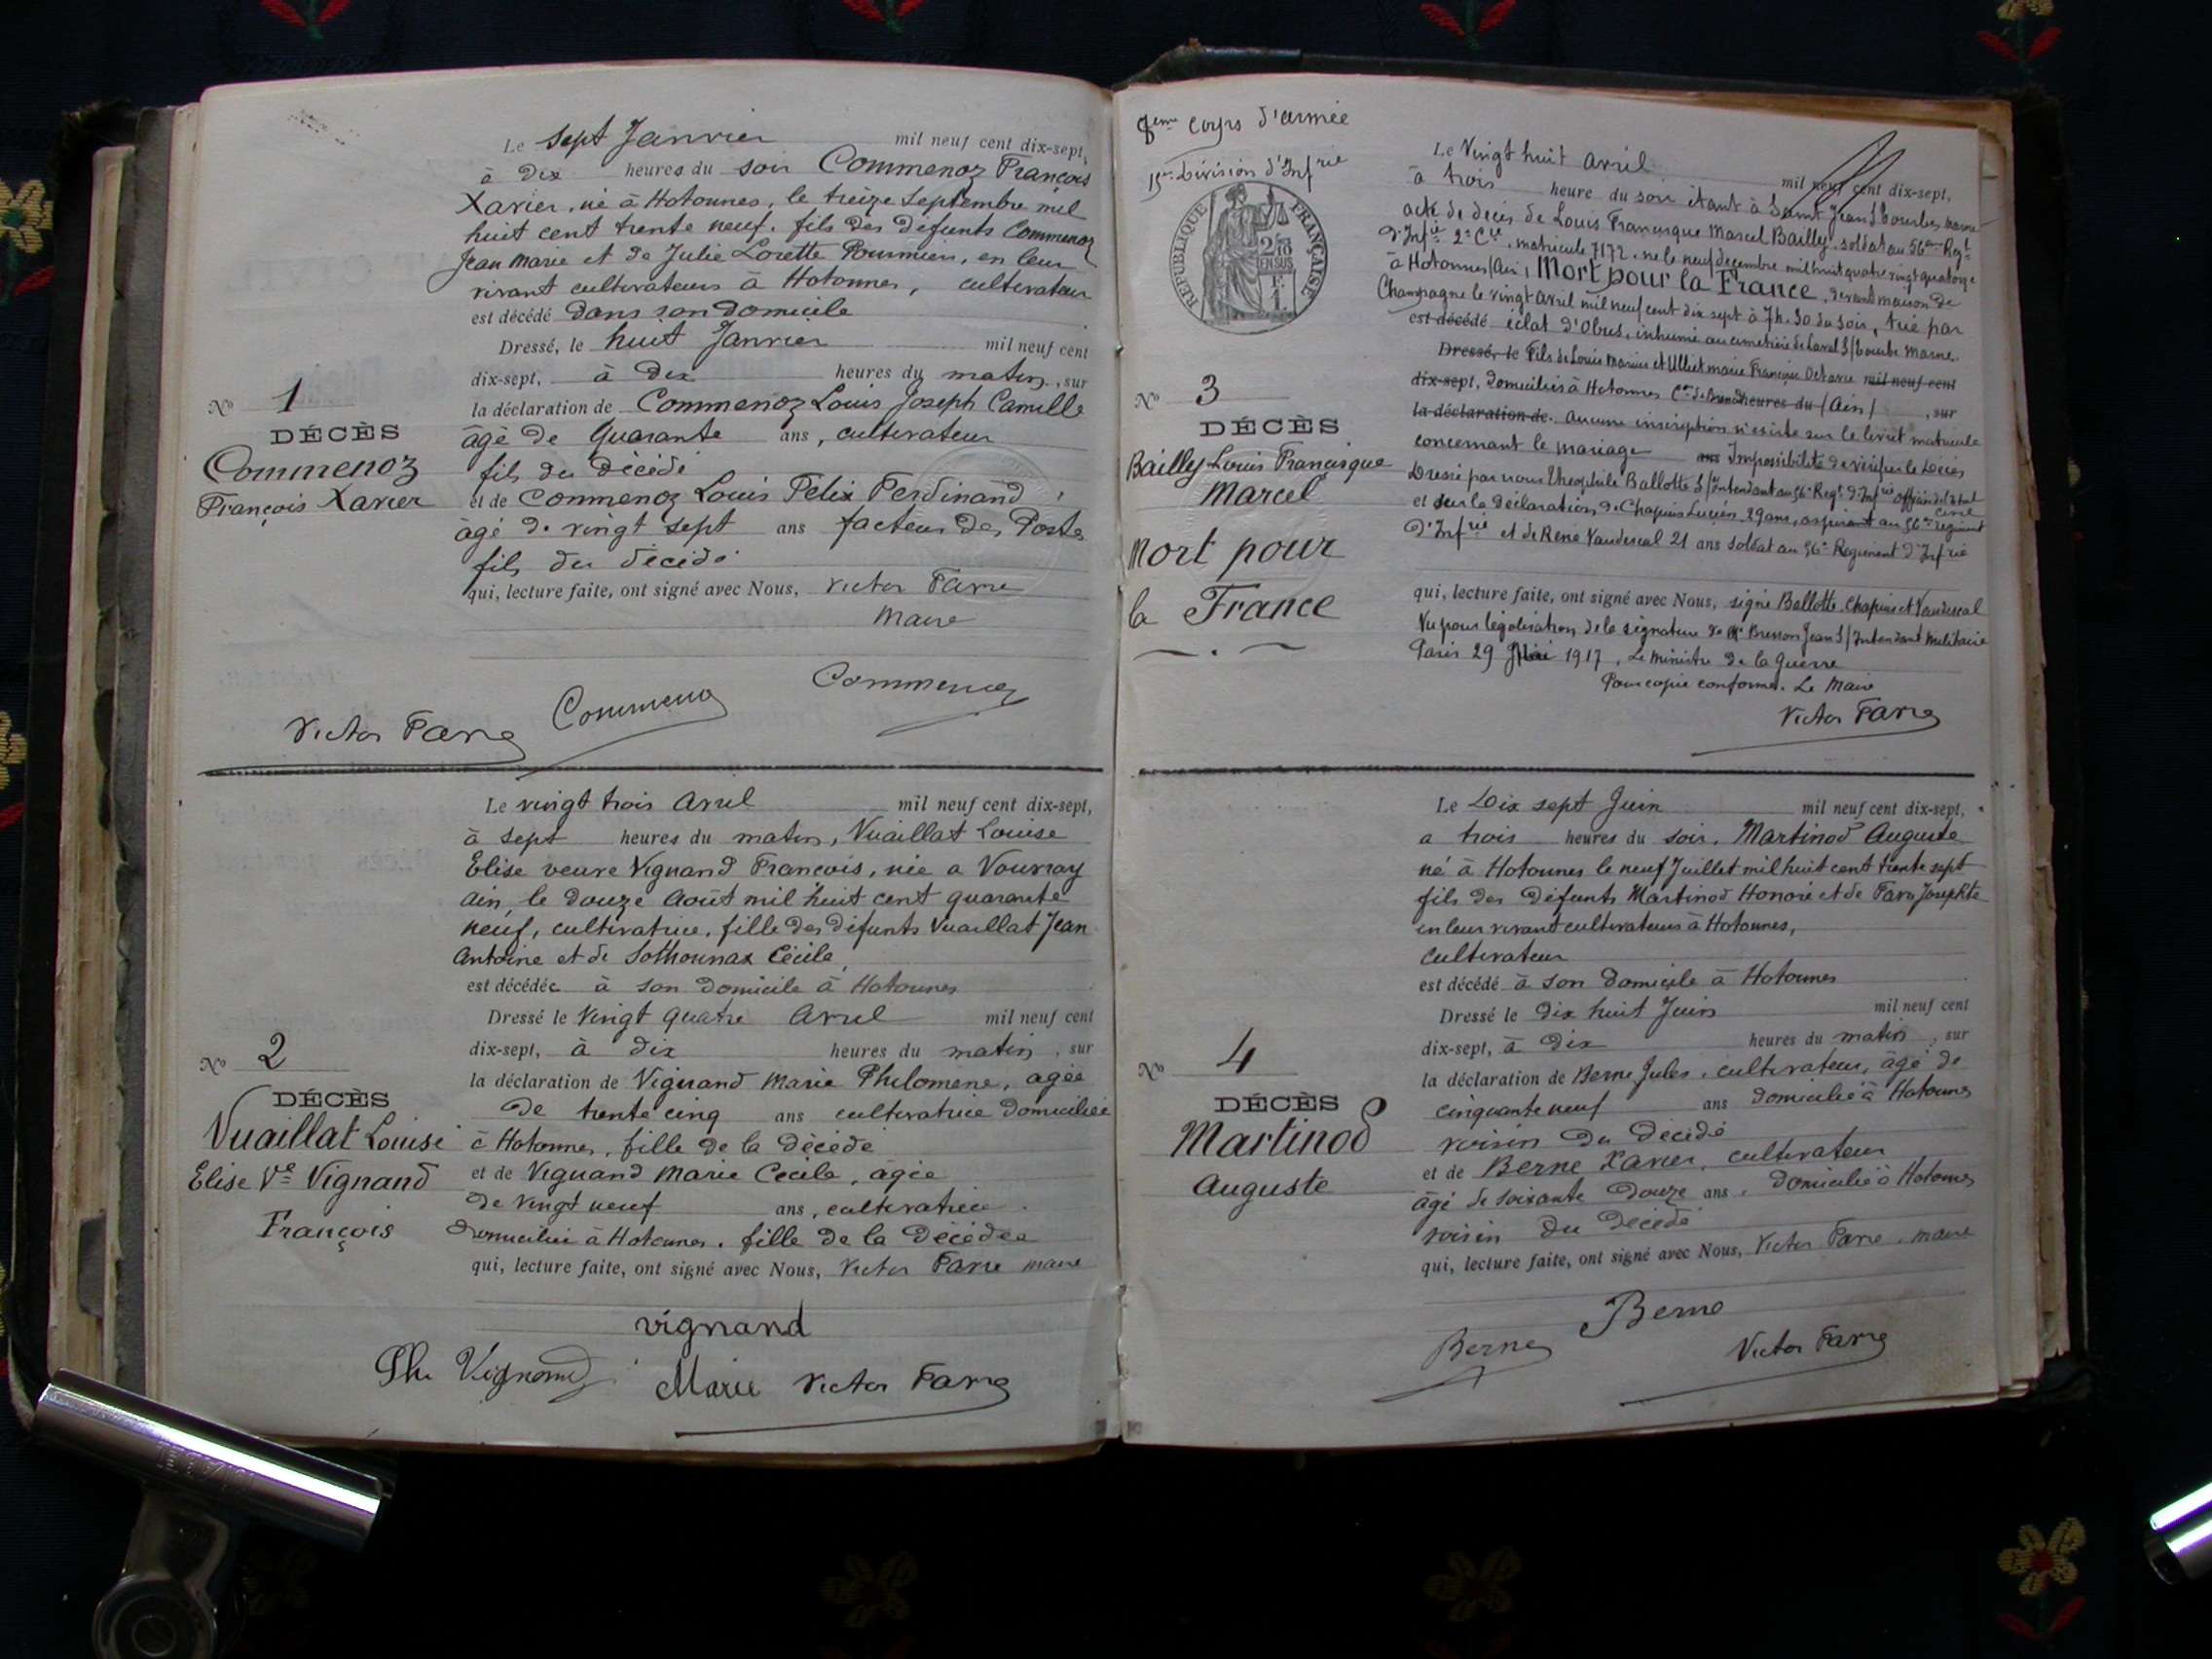 Le sept Janvier mil neuf cent dix-sept,
à dix heures du soir Commenoz François
Xavier, né à Hotonnes, le treize Septembre mil
huit cent trente neuf, fils des défunts Commenoz
Jean Marie et de Julie Lorette Pourmier, en leur
vivant cultivateurs à Hotonnes, cultivateur
est décédé dans son domicile
Dressé, le huit Janvier mil neuf cent
dix-sept, à dix heures du matin, sur
la déclaration de Commenoz Louis Joseph Camille
âgé de Quarante ans, cultivateur
fils du décédé
et de Commenoz Louis Felix Ferdinand,
âgé de vingt sept ans facteur des Postes
fils du décédé
qui, lecture faite, ont signé avec Nous, Victor Farre
Maire
No 1
DÉCÈS
Commenoz
François Xavier
Victor Farre Commenoz Commenoz
Le vingt trois Avril mil neuf cent dix-sept,
à sept heures du matin, Vuaillat Louise
Elise veuve Vignand François, née a Vouvray
Ain, le douze Août mil huit cent quarante
neuf, cultivatrice, fille des défunts Vuaillat Jean
Antoine et de Sothounax Cécile,
est décédée à son domicile à Hotonnes
Dressé le vingt quatre Avril mil neuf cent
dix-sept, à dix heures du matin, sur
la déclaration de Vignand Marie Philomène, agée
de trente cinq ans cultivatrice domiciliée
à Hotonnes, fille de la décédé
et de Vignand Marie Cecile, agée
de vingt neuf ans, cultivatrice
domiciliée à Hotonnes, fille de la décédée
qui, lecture faite, ont signé avec Nous, Victor Farre maire
No 2
DÉCÈS
Vuaillat Louise
Elise Ve Vignand
François
vignand
Ph. Vignand Marie Victor Farre
8eme Corps d'armée
15e Division d'Infrie
RÉPUBLIQUE FRANÇAISE
2/10 EN SUS
1F.
Le Vingt huit avril mil neuf cent dix-sept,
à trois heure du soir étant à Saint Jean S/Tourbe, Marne
acte de décès de Louis Francisque Marcel Bailly, soldat au 56eme Regt
d'Infie 2e Cie, matricule 7172, né le neuf décembre mil huit quatre vingt quatorze
à Hotonnes (Ain), Mort pour la France, devant maison de
Champagne le vingt avril mil neuf cent dix sept à 7h.30 du soir, tué par
est décédé éclat d'Obus, inhumé au cimetière de Laval S/Tourbe Marne.
Dressé, le Fils de Louis Marius et Ulliet Marie Françoise Octavie mil neuf cent
dix-sept, domiciliés à Hotonnes Con de Brénod heures du (Ain), sur
la déclaration de. Aucune inscription n'existe sur le livret matricule
concernant le mariage ans Impossibilité de vérifier le décès
Dressé par nous Théophile Ballotte S/Intendant au 56e Regt d'Infrie officier de l'état civil
et sur la déclaration de Chapuis Lucien 29 ans, aspirant au 56eme régiment
d'Infrie et de René Vaudescal 21 ans soldat au 56e Régiment d'Infrie
qui, lecture faite, ont signé avec Nous, signé Ballotte, Chapuis et Vaudescal
Vu pour légalisation de la signature de Mr Bresson Jean S/Intendant Militaire
Paris 29 Mai 1917, Le Ministre de la Guerre
Pour copie conforme. Le Maire
Victor Farre
No 3
DÉCÈS
Bailly Louis Francisque
Marcel
Mort pour
la France
Le Dix sept Juin mil neuf cent dix-sept,
a trois heures du soir, Martinod Auguste
né à Hotonnes le neuf Juillet mil huit cent trente sept
fils des défunts Martinod Honoré et de Favre Josephte
en leur vivant cultivateurs à Hotonnes,
cultivateur
est décédé à son domicile à Hotonnes
Dressé le dix huit Juin mil neuf cent
dix-sept, à dix heures du matin, sur
la déclaration de Berne Jules, cultivateur, âgé de
cinquante neuf ans domicilié à Hotonnes
voisin du décédé
et de Berne Xavier, cultivateur
âgé de soixante douze ans, domicilié à Hotonnes
voisin du décédé
qui, lecture faite, ont signé avec Nous, Victor Farre, maire
No 4
DÉCÈS
Martinod
Auguste
Berne Berne Victor Farre